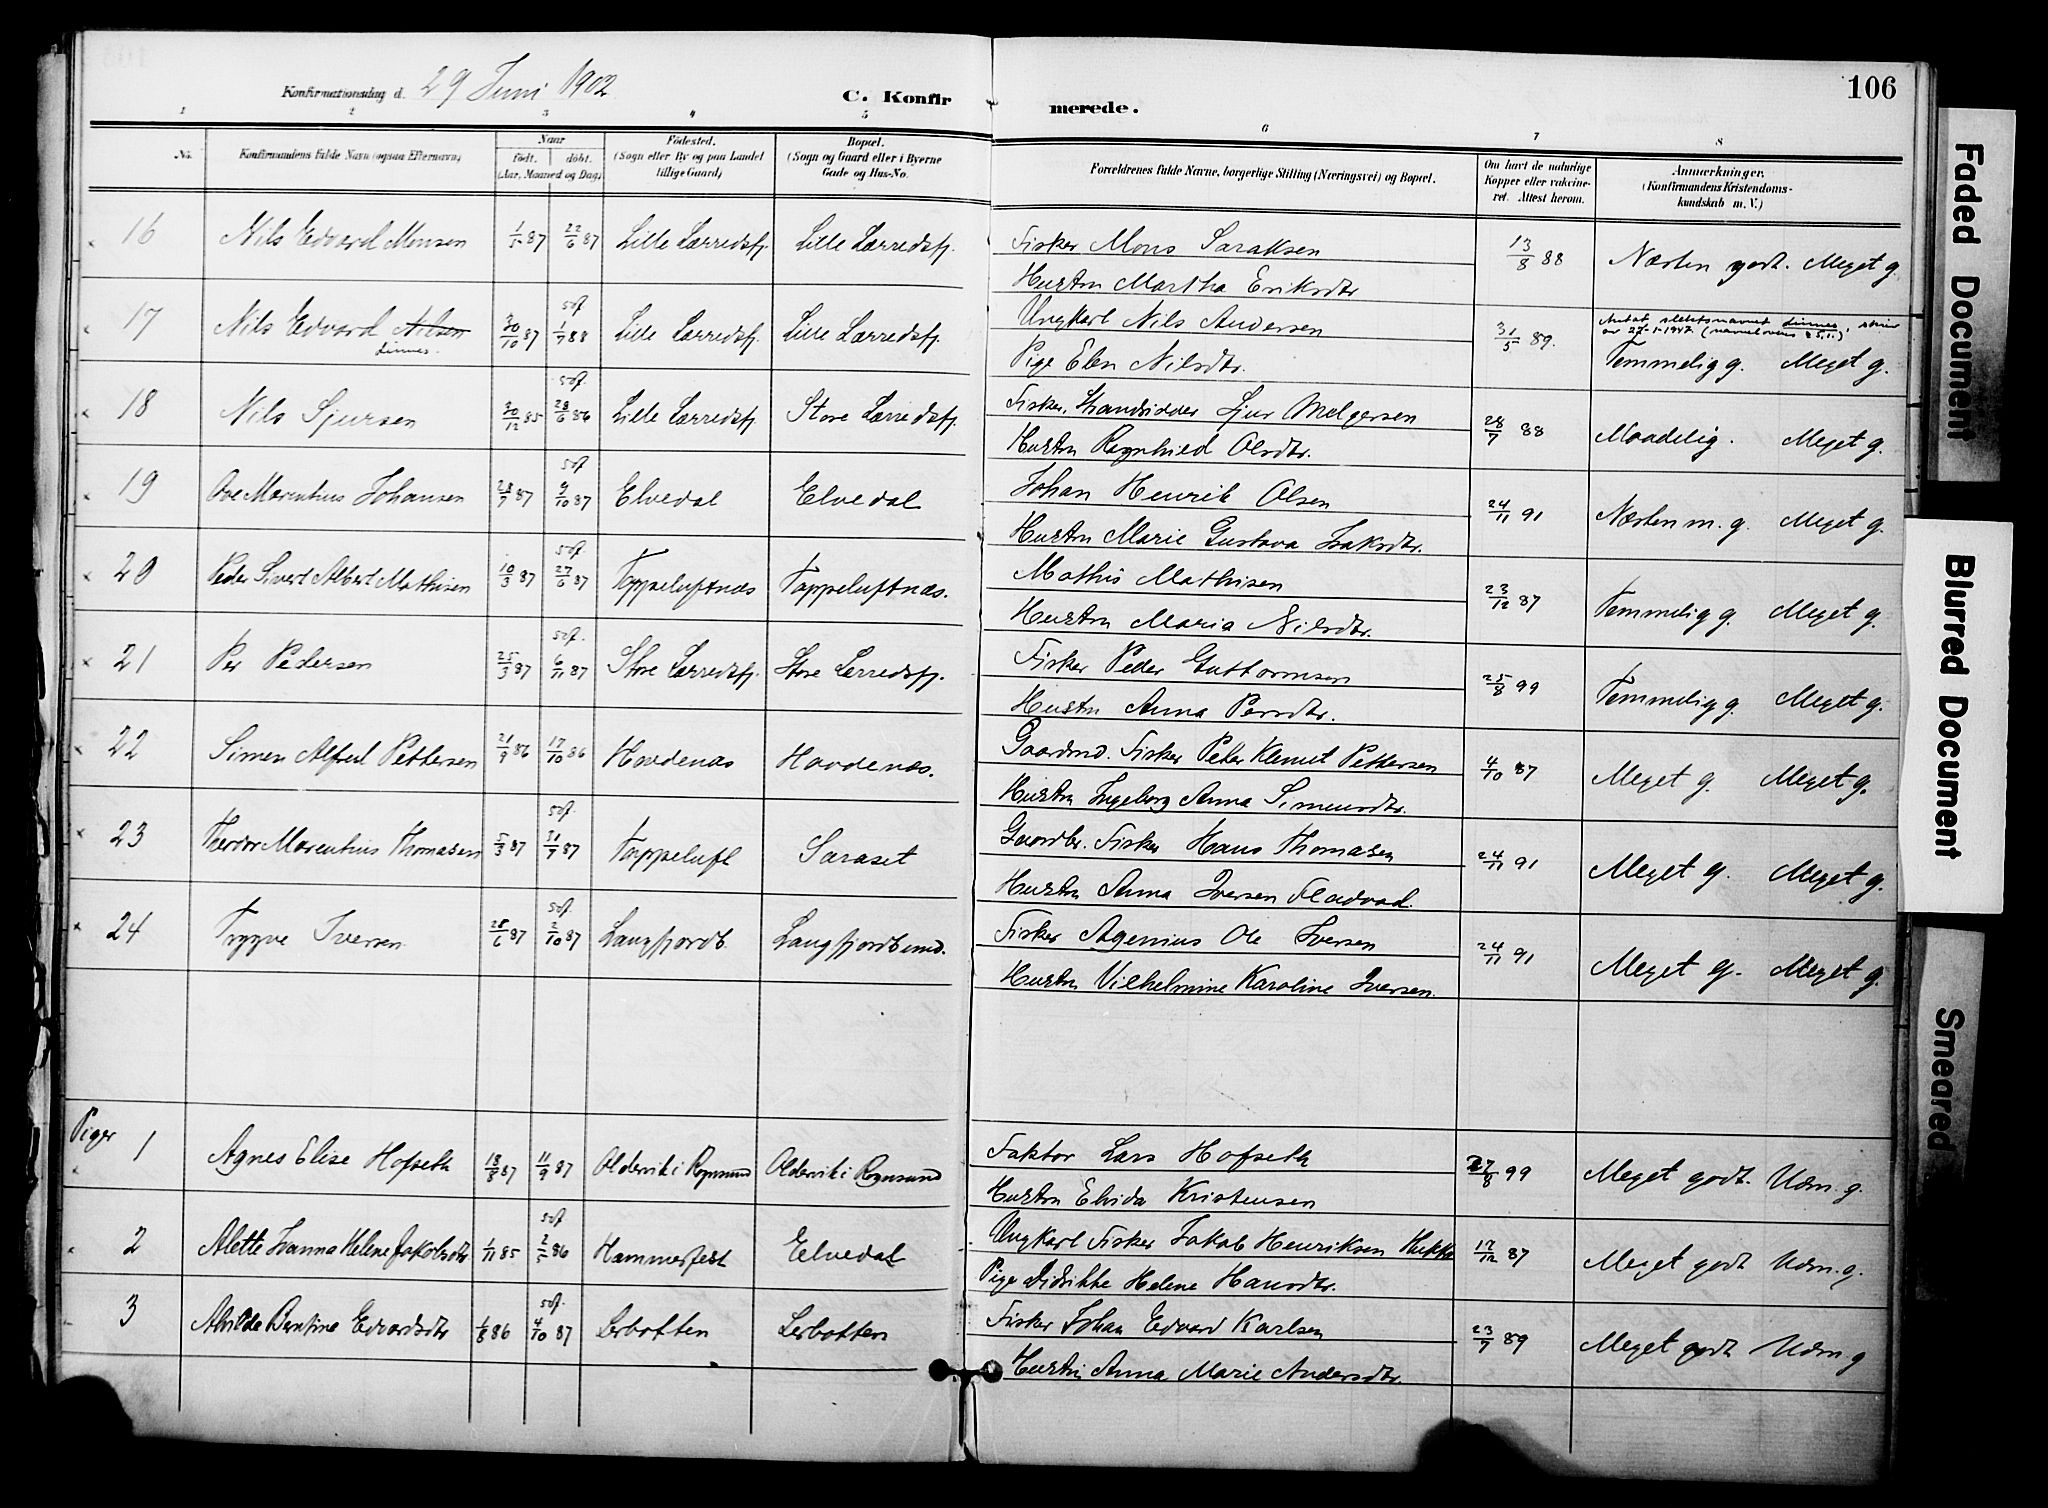 106
Konfirmationsdag d. 29 Juni 1902
C. Konfirmerede.
1 2 3 4 5 6 7 8
No. Konfirmandens fulde Navn (ogsaa Efternavn) Naar født. døbt. (Aar, Maaned og Dag) Fødested. (Sogn eller By og paa Landet tillige Gaard) Bopæl. (Sogn og Gaard eller i Byerne Gade og Hus-No. Forældrenes fulde Navne, borgerlige Stilling (Næringsvei) og Bopæl. Om havt de naturlige Kopper eller vakcineret. Attest herom. Anmærkninger. (Konfirmandens Kristendomskundskab m. V.)
16 Nils Edvard Monsen 1/5 87 22/6 87 Lille Lærredsfj. Lille Lærredsfj. Fisker Mons Saraksen 13/8 88 Næsten godt. Meget g.
Hustru Martha Eriksdtr
17 Nils Edvard Nilsen 30/10 87 1/7 88 Lille Lærredsfj. Lille Lærredsfj. Ungkarl Nils Andersen 31/5 89. Antat slektsnavnet
av 27-1-1947. (navnelovens
Pige Elen Nilsdtr. Temmelig g. Meget g.
18 Nils Sjursen 30/12 85 28/6 86 Lille Lærredsfj. Store Lærredsfj. Fisker, Strandsidder Sjur Melgersen 28/7 88 Maadelig. Meget g.
Hustru Ragnhild Olsdtr.
19 Ove Marentius Johansen 28/7 87 9/10 87 Elvedal Elvedal Johan Henrik Olsen 24/11 91 Næsten m. g. Meget g.
Hustru Marie Gustava Isaksdtr.
20 Peder Sivert Albert Mathisen 10/3 87 27/6 87 Tappeluftnæs Tappeluftnæs. Mathis Mathisen 23/12 87 Temmelig g. Meget g.
Hustru Maria Nilsdtr.
21 Per Pedersen 25/3 87 6/11 87 Store Lærredsfj. Store Lærredsfj. Fisker Peder Guttormsen 25/8 99 Temmelig g. Meget g.
Hustru Anna Persdtr.
22 Simon Alfred Pettersen 21/9 86 17/10 86 Havdenæs Havdenæs. Gaardmd. Fisker Peter Klemet Pettersen 4/10 87 Meget g. Meget g.
Hustru Ingeborg Anna Simensdtr.
23 Theodor Marentius Thomasen 5/3 87 31/7 87 Tappeluft Saraset Gaardbr. Fisker Hans Thomasen 24/11 91 Meget g. Meget g.
Hustru Anna Iversen Fladvad.
24 Trygve Iversen 28/6 87 2/10 87 Langfjordb. Langfjordbund. Fisker Agenius Ole Iversen 24/11 91 Meget g. Meget g.
Hustru Vilhelmine Karoline Iversen.
Piger
1 Agnes Elise Hofseth 18/8 87 11/9 87 Oldervik i Rognsund Oldervik i Rognsund Faktor Lars Hofseth 27/8 99 Meget godt. Udm. g.
Hustru Elvida Kristensen
2 Alette Ivanna Helene Jakobsdtr 1/11 85 2/5 86 Hammerfest Elvedal Ungkarl Fisker Jakob Henriksen Hukka 17/12 87 Meget godt Udm. g.
Pige Didrikke Helene Hansdtr.
3 Alvilde Bentine Edvardsdtr 1/8 86 4/10 87 Lerbotten Lerbotten Fisker Johan Edvard Karlsen 23/9 89 Meget godt Udm. g
Hustru Anna Marie Andersdtr.
Faded Document
Blurred Document
Smeared